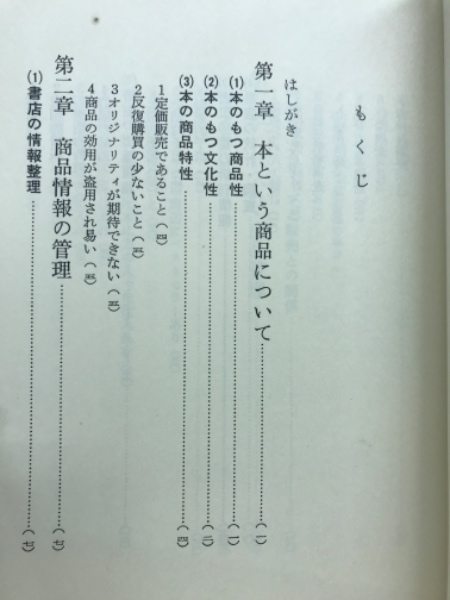 もくじ
はしがき
第一章 本という商品について……………(一)
(1)本のもつ商品性……………(一)
(2)本のもつ文化性……………(二)
(3)本の商品特性……………(四)
1定価販売であること(四)
2反復購買の少ないこと(五)
3オリジナリティが期待できない(五)
4商品の効用が盗用され易い(五)
第二章 商品情報の管理……………(七)
(1)書店の情報整理……………(七)